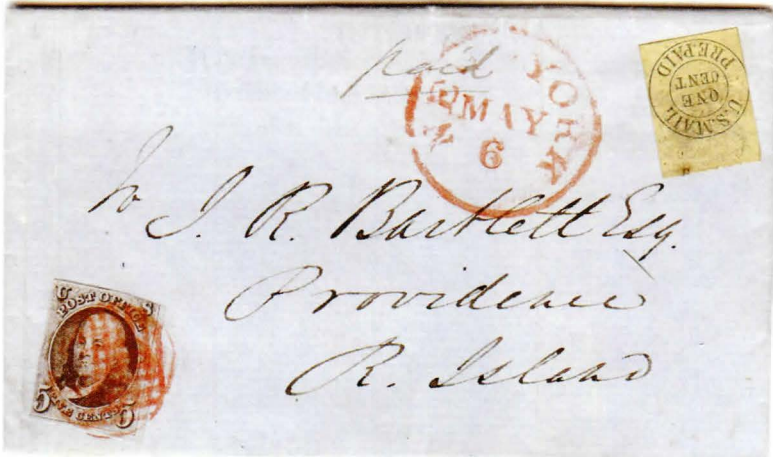 paid
NEW YORK
MAY
6
U.S. MAIL
PREPAID
ONE
CENT
To J. R. Bartlett Esq.
Providence
R. Island
U S
POST OFFICE
5 FIVE CENTS 5